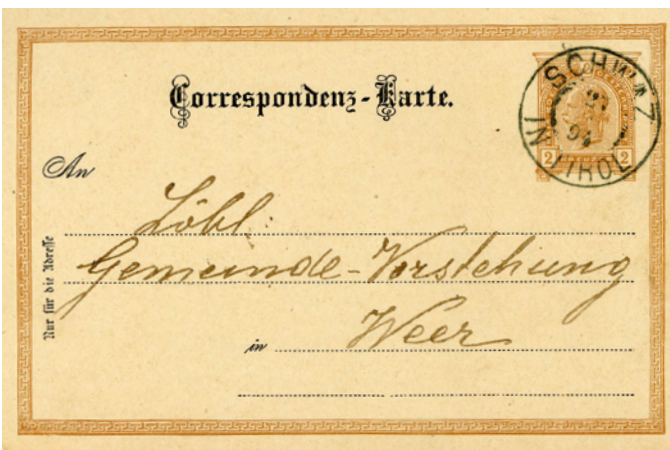 Correspondenz-Karte.
SCHWAZ
IN TIROL
94
2 2
An
Löbl:
Gemeinde-Vorstehung
in Weer
Nur für die Adresse